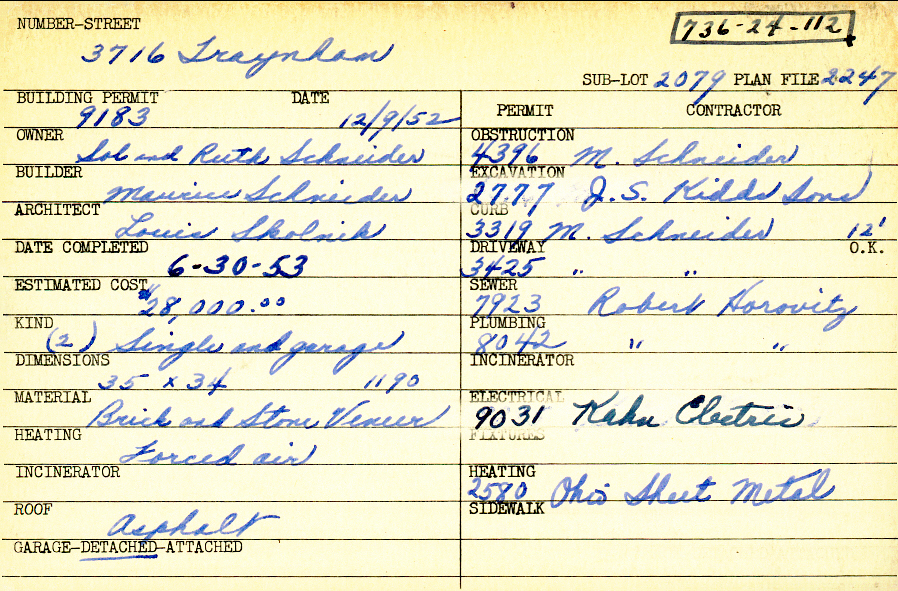 NUMBER-STREET
736-24-112
3716 Traynham
SUB-LOT 2079 PLAN FILE 2247
BUILDING PERMIT DATE
9183 12/9/52
OWNER
Sol and Ruth Schneider
BUILDER
Maurice Schneider
ARCHITECT
Louis Skolnik
DATE COMPLETED
6-30-53
ESTIMATED COST
$28,000.00
KIND
(2) Single and garage
DIMENSIONS
35 x 34 1190
MATERIAL
Brick and Stone Veneer
HEATING
Forced air
INCINERATOR
ROOF
Asphalt
GARAGE-DETACHED-ATTACHED
PERMIT CONTRACTOR
OBSTRUCTION
4396 M. Schneider
EXCAVATION
2777 J.S. Kidds Sons
CURB
3319 M. Schneider 12'
DRIVEWAY O.K.
3425 " "
SEWER
7923 Robert Horovitz
PLUMBING
8042 " "
INCINERATOR
ELECTRICAL
9031 Kahn Electric
FIXTURES
HEATING
2580 Ohio Sheet Metal
SIDEWALK